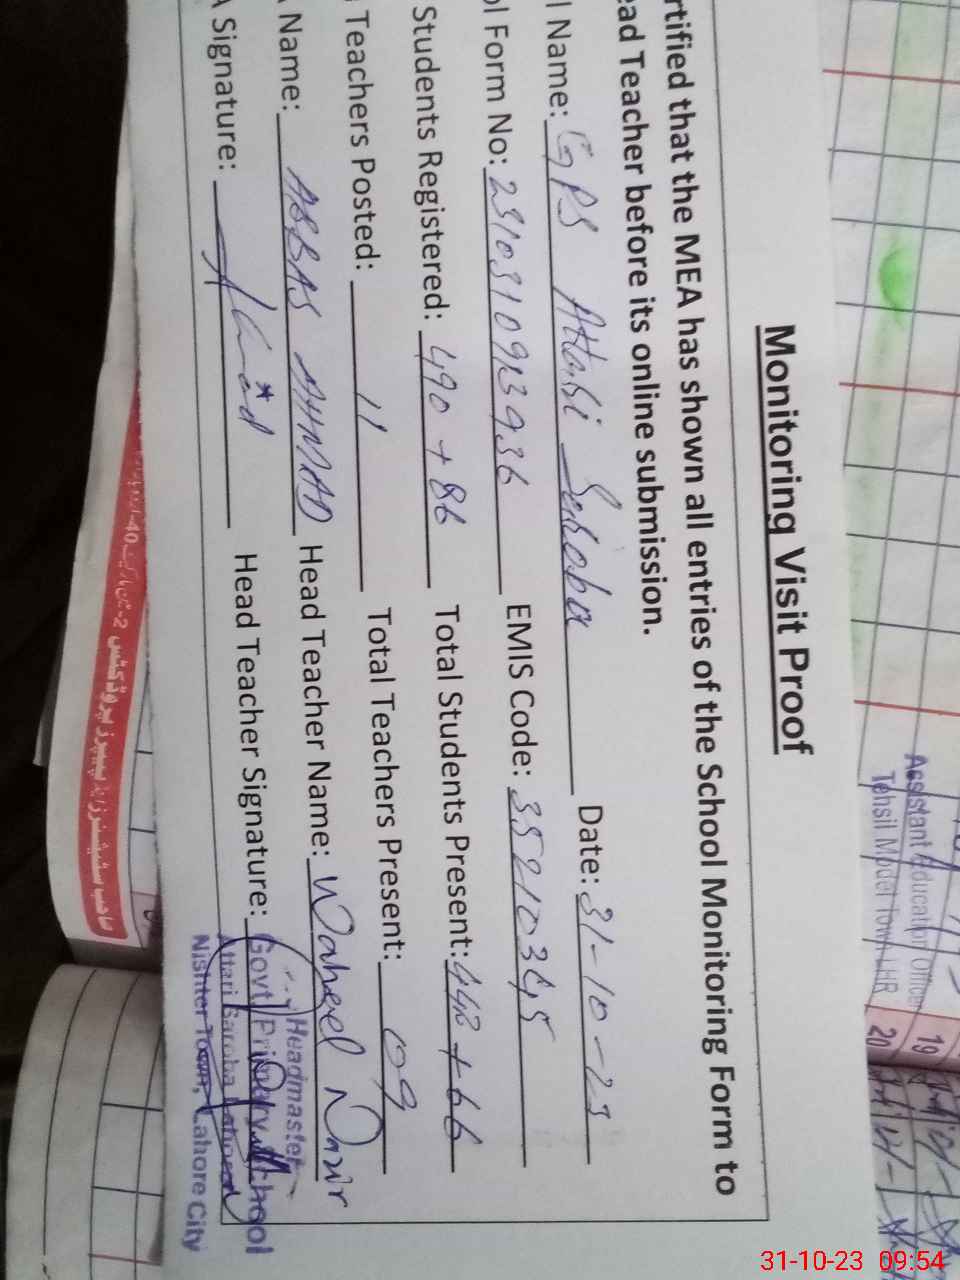 Monitoring Visit Proof
rtified that the MEA has shown all entries of the School Monitoring Form to
ead Teacher before its online submission.
l Name: GPS Attari Saroba Date: 31-10-23
ol Form No: 2310310913936 EMIS Code: 35210345
Students Registered: 490 + 86 Total Students Present: 442 + 66
Teachers Posted: 11 Total Teachers Present: 09
A Name: ABBAS AHMAD Head Teacher Name: Waheed Nazir
A Signature: Head Teacher Signature:
Headmaster
Govt. Primary School
Attari Saroba Lahore
Nishter Town, Lahore City
Assistant Education Officer
Tehsil Model Town LHR
19
20
31-10-23 09:54